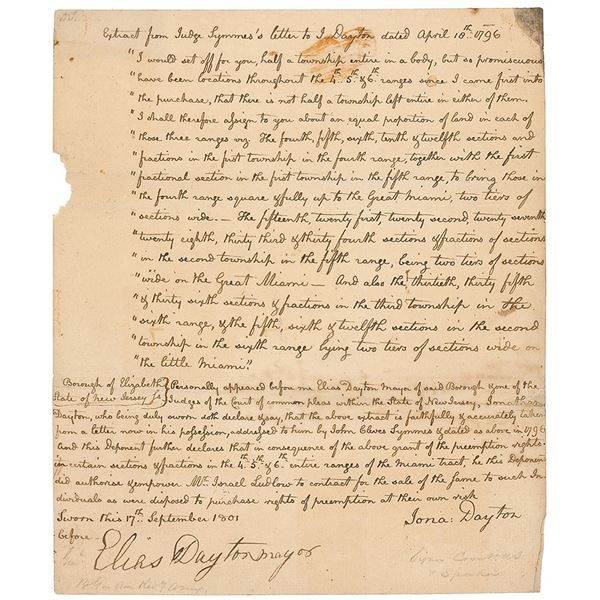 Extract from Judge Symmes's letter to J. Dayton dated April 10th. 1796
"I would set off for you, half a township entire in a body, but so promiscuous
"have been locations throughout the 4th. 5th. & 6th. ranges since I came first into
"the purchase, that there is not half a township left entire in either of them.
"I shall therefore assign to you about an equal proportion of land in each of
"those three ranges viz. The fourth, fifth, sixth, tenth & twelfth sections and
"fractions in the first township in the fourth range, together with the first
"fractional section in the first township in the fifth range, to bring those in
"the fourth range square & fully up to the Great Miami, two tiers of
"sections wide. — The fifteenth, twenty first, twenty second, twenty seventh
"twenty eighth, thirty third & thirty fourth sections & fractions of sections
"in the second township in the fifth range, being two tiers of sections
"wide on the Great Miami — And also the thirtieth, thirty fifth
"& thirty sixth sections & fractions in the third township in the
"sixth range, & the fifth, sixth & twelfth sections in the second
"township in the sixth range lying two tiers of sections wide on
"the little Miami."
Borough of Elizabeth
State of New Jersey ss
Personally appeared before me Elias Dayton Mayor of said Borough & one of the
Judges of the Court of common pleas within the State of New Jersey, Jonathan
Dayton, who being duly sworn doth declare & say, that the above extract is faithfully & accurately taken
from a letter now in his possession, addressed to him by John Cleves Symmes & dated as above in 1796
And this Deponent further declares that in consequence of the above grant of the preemption rights
in certain sections & fractions in the 4th. 5th. & 6th. entire ranges of the Miami tract, he this Deponent
did authorise & empower Mr. Israel Ludlow to contract for the sale of the same to such In
dividuals as were disposed to purchase rights of preemption at their own risk
Sworn this 17th. September 1801
before
Jona: Dayton
Elias Dayton mayor
& Speaker